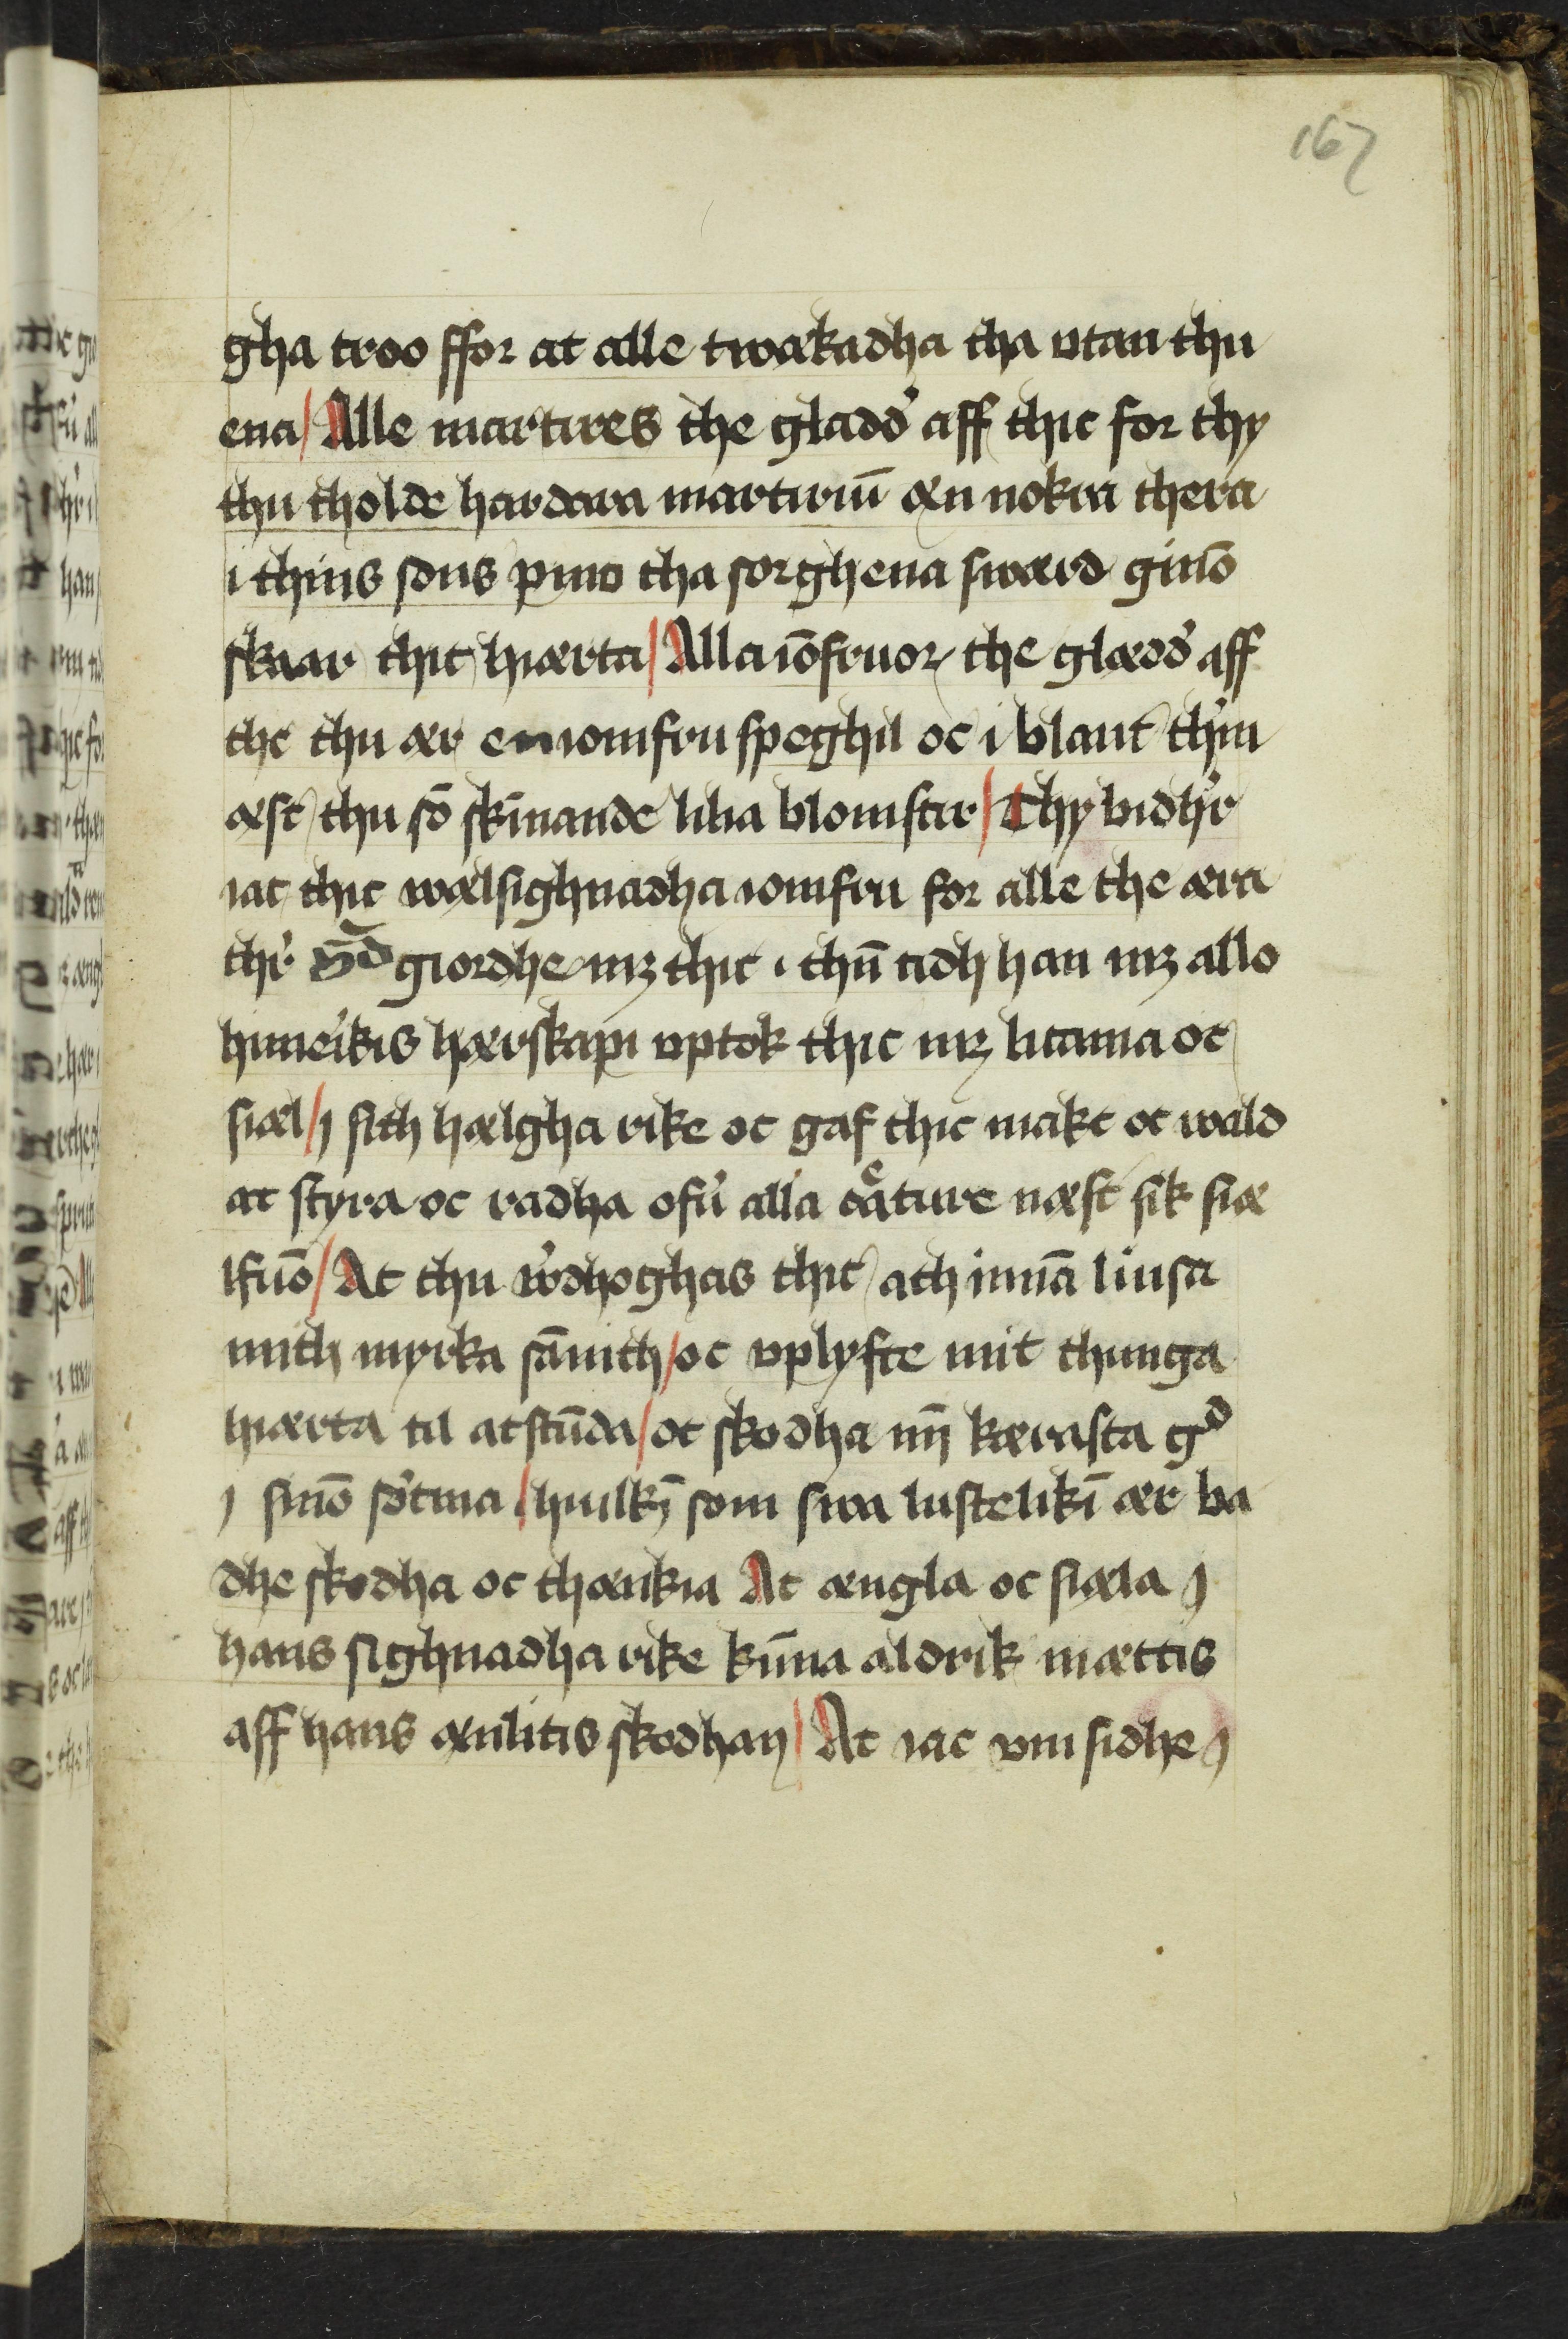 167
gha troo ffor at alle twækadha tha vtan thu
ena / Alle martires the gladd᷎ aff thic for thy
thu tholde hardara martiriū æn nokra thera
i thins sons pino tha sorghena swærd ginō
skaar thit hiærta / Alla iōfruor the glædd᷎ aff
thc thu ær en iomfru speghil oc i blant th᷎m
æst thu sō skīnande lilia blomster / Thy bidh᷎r
iac thic wælsighnadha iomfru for alle the æra
th᷎ gud giordhe mz thic i thn̄ tidh han mz allo
himerikis hærskapi vptok thic mz licama oc
siæl / j sith hælgha rike oc gaf thic makt oc wald
at styra oc radha ofu᷎ alla cͤature næst sik siæ
lfuō / At thu w᷎dhoghas thit ath innā liusa
mith myrka sāmith / oc vplyfte mit thunga
hiærta til atstūda / oc skodha mī kærasta gᵈ
j sinō fōtma / huilkī som swa lustelikī ær ba
dhe skodha oc thænkia At ængla oc siæla j
hans sighnadha rike kūna aldrik mættis
aff hans ænlitis skodhan / At iac vm sidhe j